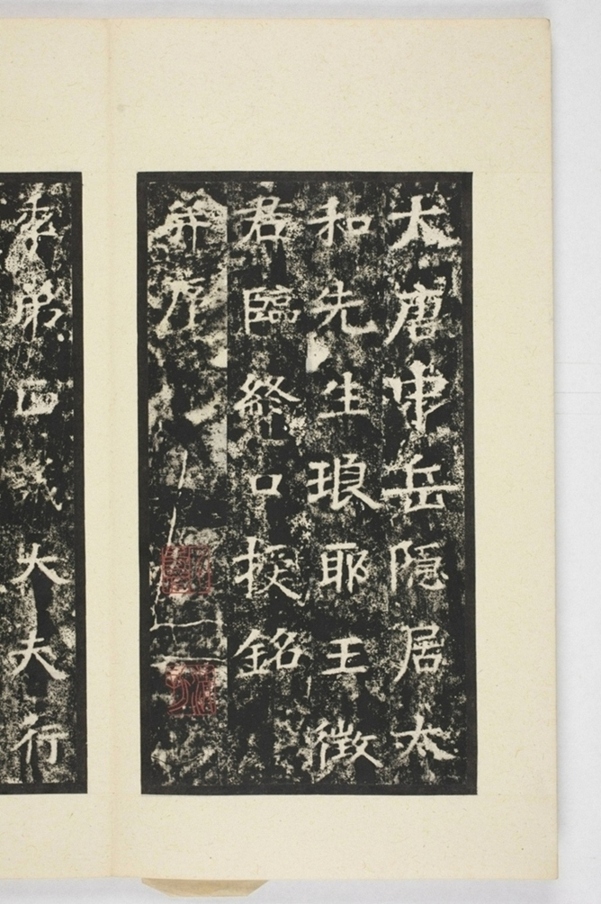 大唐中岳隱居太
和先生琅耶王徵
君臨終口授銘
并序
季弟正議大夫行